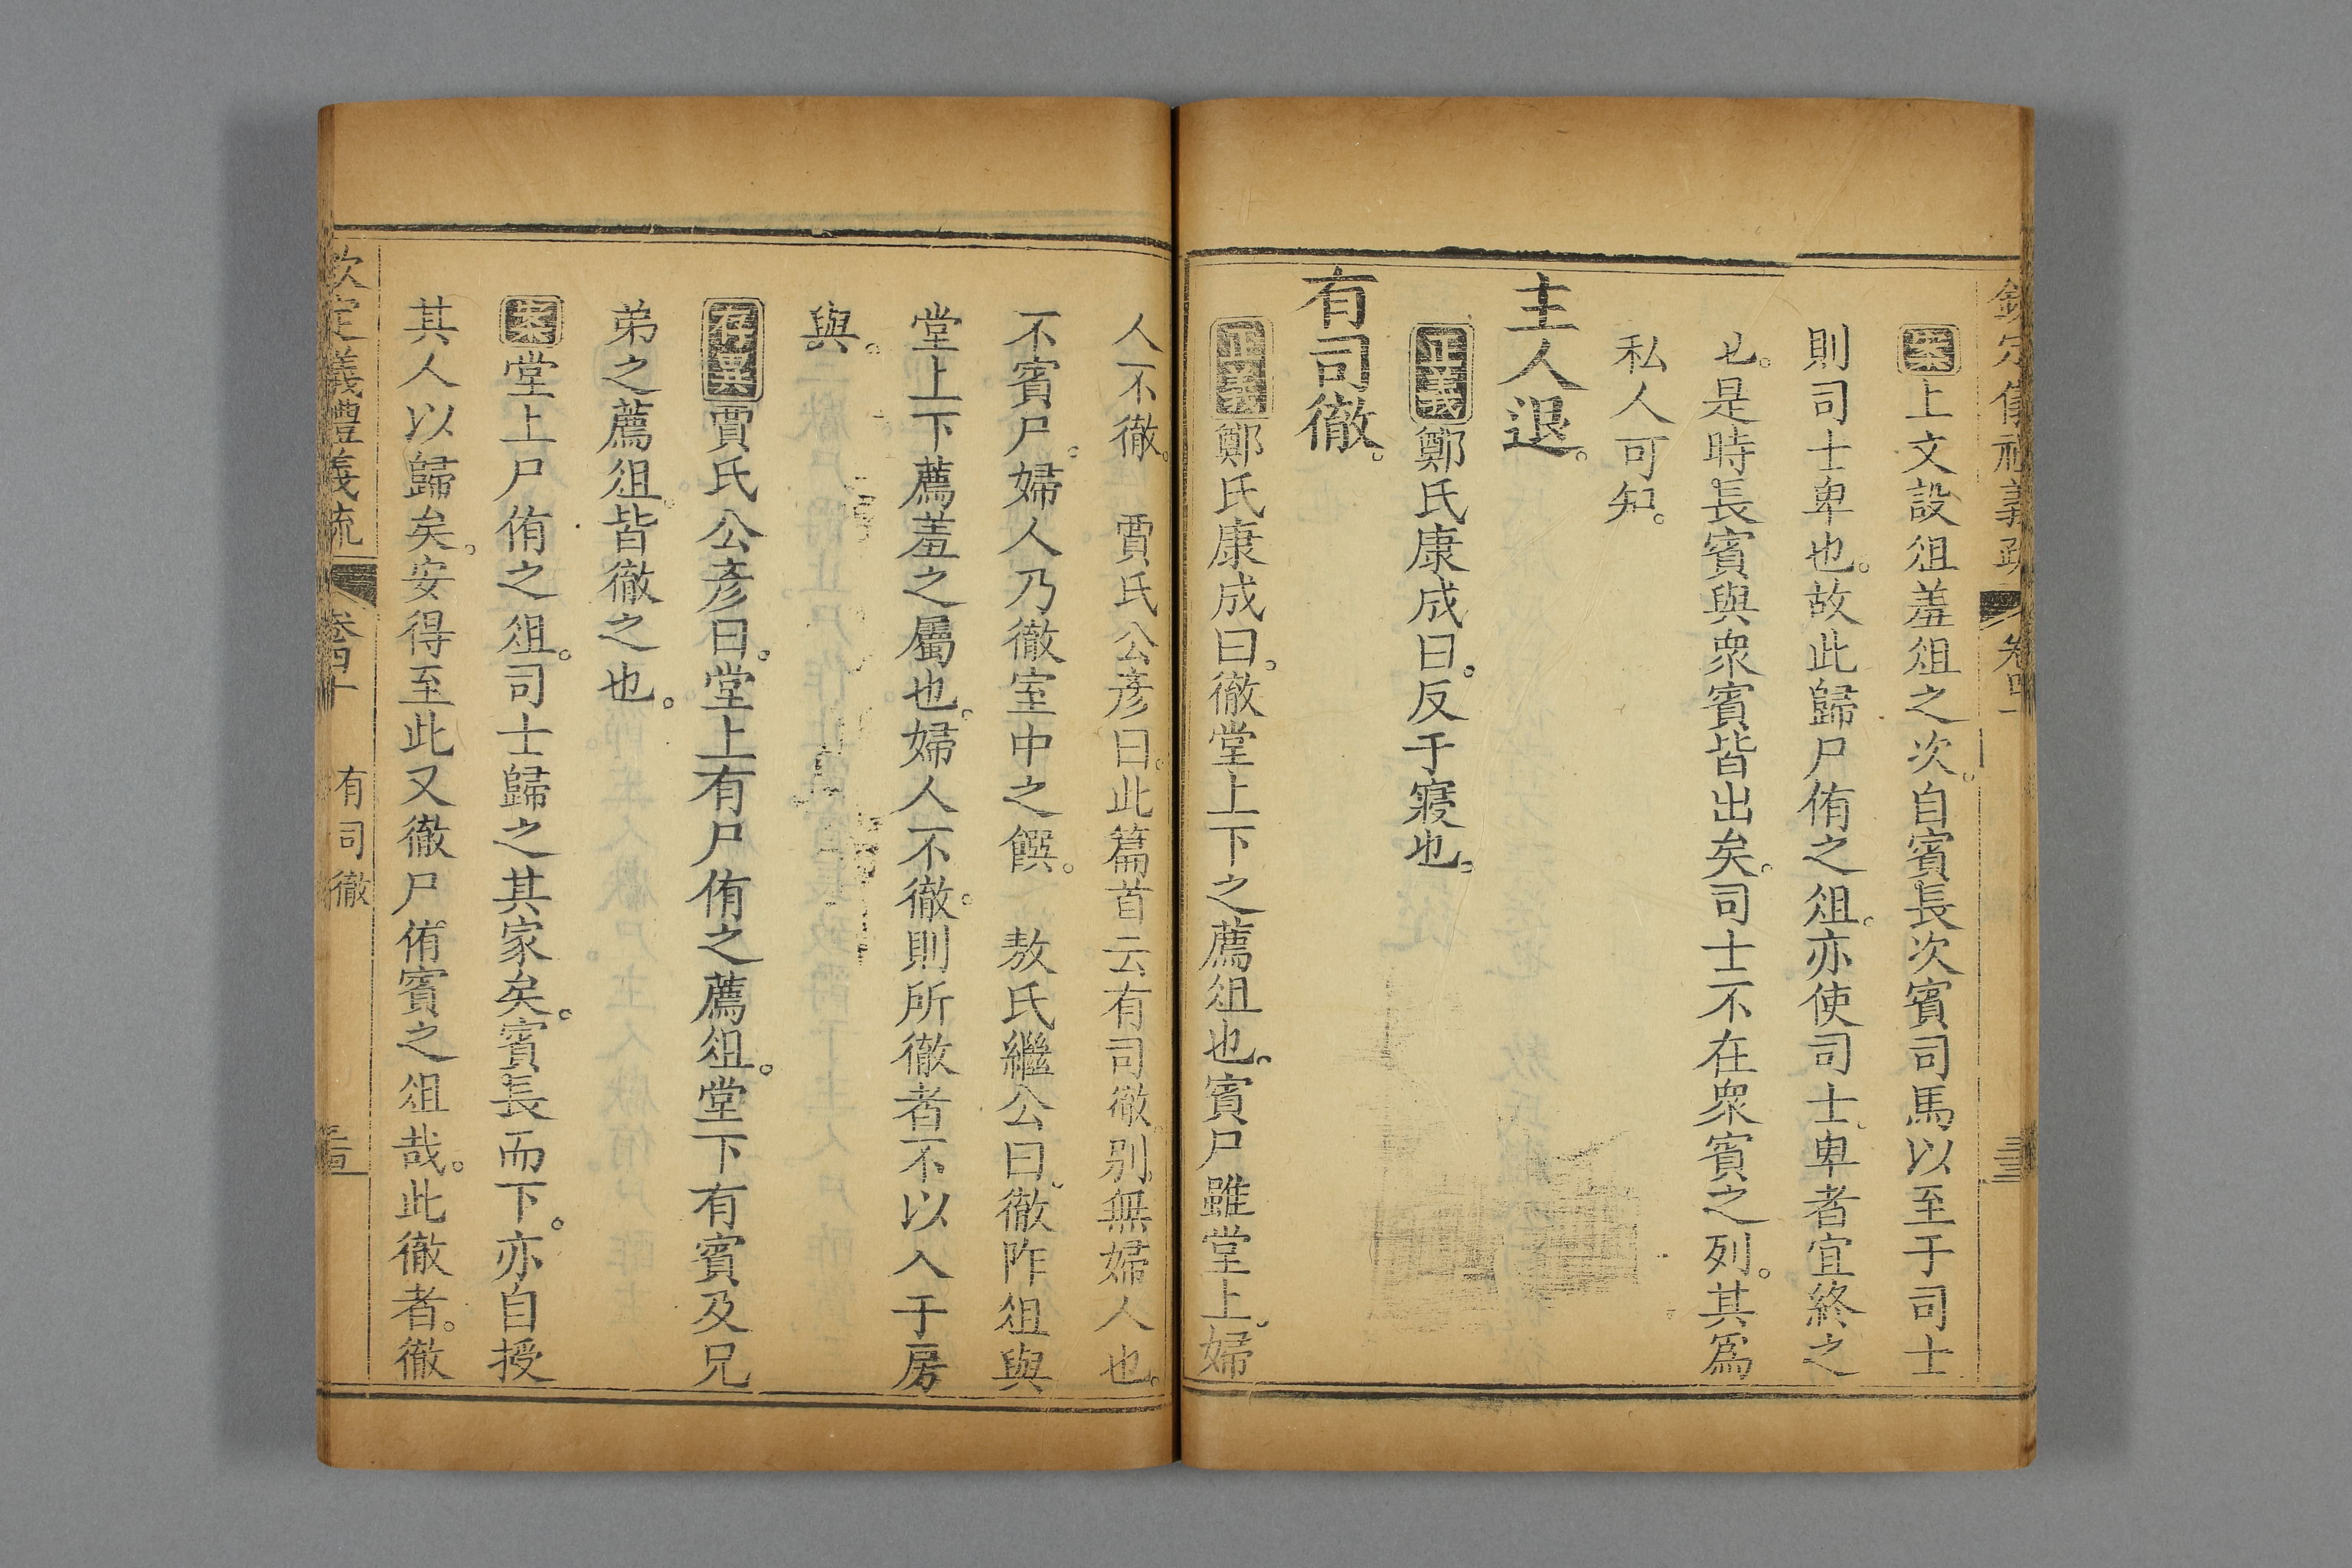 案上文設俎羞俎之次。自賓長次賓司馬以至于司士
則司士卑也。故此歸尸侑之俎。亦使司士。卑者宜終之
也。是時長賓與眾賓皆出矣。司士不在眾賓之列。其爲
私人可知。
主人退。
正義鄭氏康成曰。反于寢也。
有司徹。
正義鄭氏康成曰。徹堂上下之薦俎也。賓尸雖堂上。婦
人不徹。 賈氏公彥曰。此篇首云有司徹。別無婦人也。
不賓尸。婦人乃徹室中之饌。 敖氏繼公曰。徹阼俎與
堂上下薦羞之屬也。婦人不徹。則所徹者不以入于房
與。
存異賈氏公彥曰。堂上有尸侑之薦俎。堂下有賓及兄
弟之薦俎。皆徹之也。
案堂上尸侑之俎。司士歸之其家矣。賓長而下。亦自授
其人以歸矣。安得至此又徹尸侑賓之俎哉。此徹者。徹
欽定義禮義疏 卷四十 有司徹